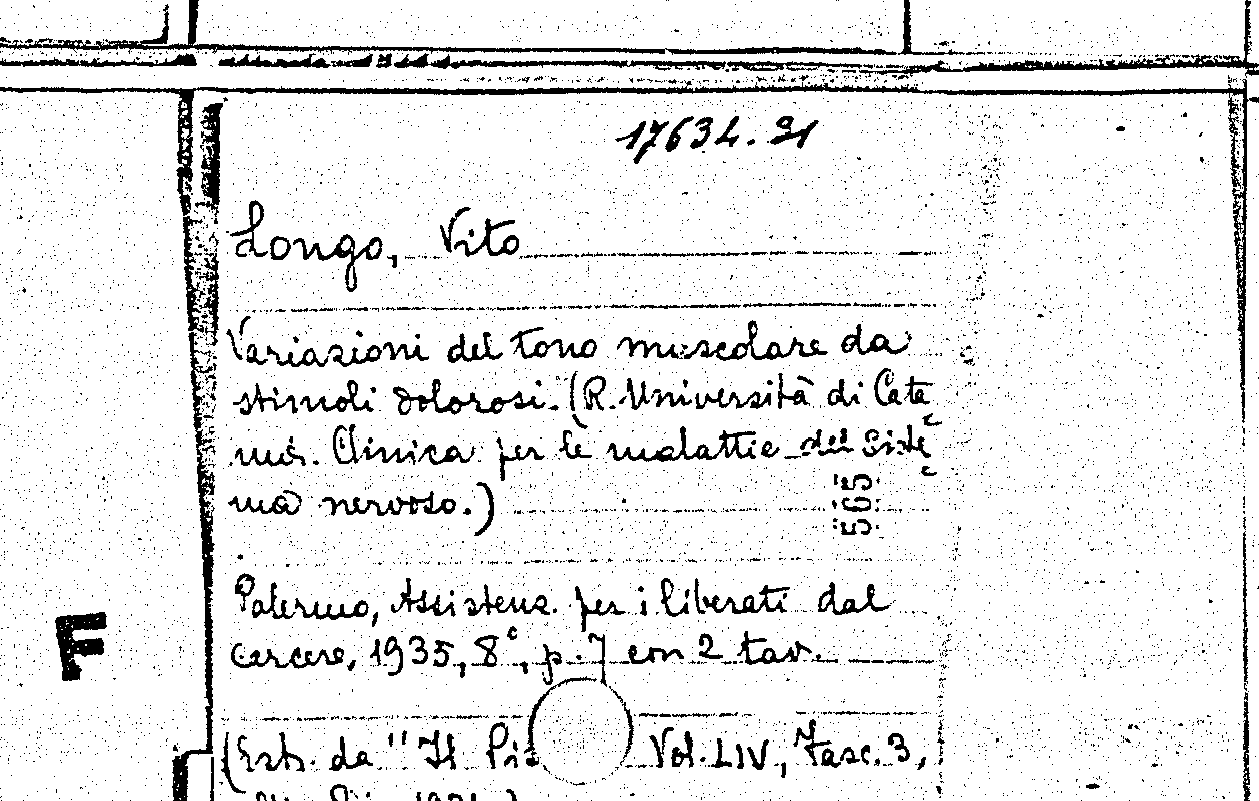 17634.91
Longo, Vito
Variazioni del tono muscolare da
stimoli dolorosi. (R. Università di Cata
nia. Clinica per le malattie del siste
ma nervoso.)
565
Palermo, Assistenz. per i liberati dal
carcere, 1935, 8°, p. 7 con 2 tav.
F
(Estr. da "Il Pis Vol. LIV, Fasc. 3,